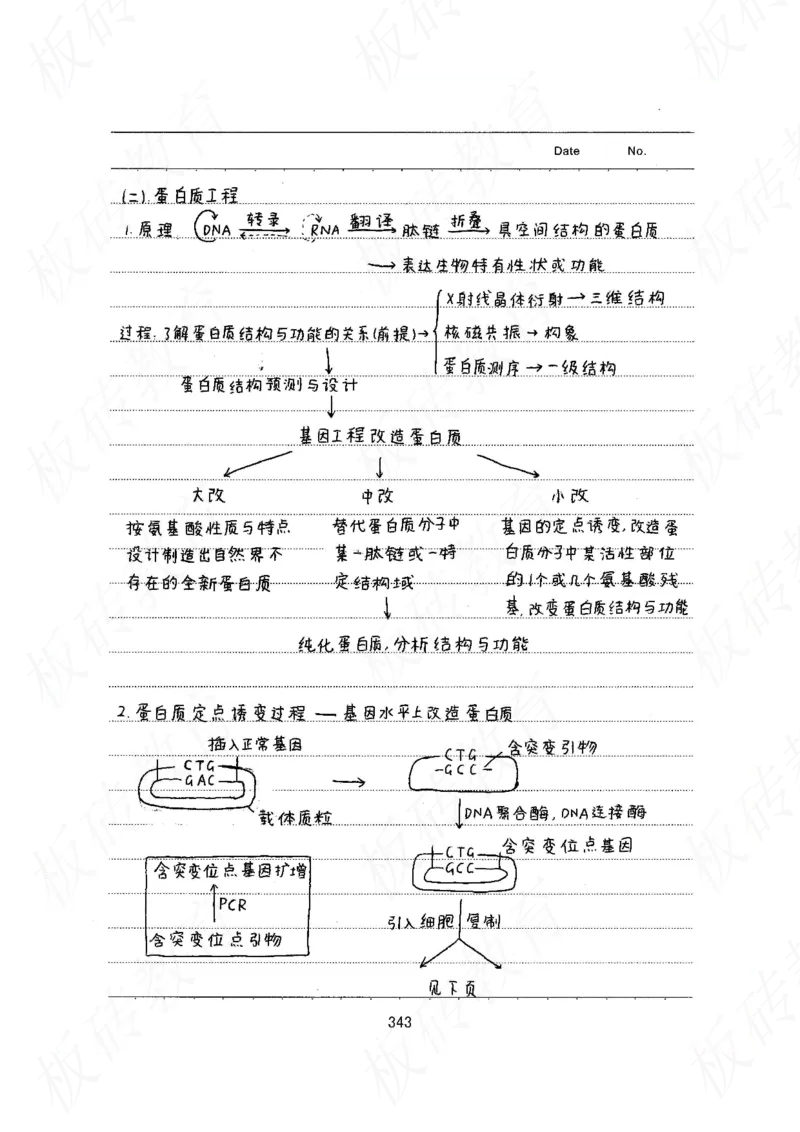 Date No.
(二).蛋白质工程
1.原理. DNA 转录 RNA 翻译 肽链 折叠 具空间结构的蛋白质
→表达生物特有性状或功能
X射线晶体衍射→三维结构
过程:了解蛋白质结构与功能的关系(前提)→ 核磁共振→构象
蛋白质测序→一级结构
蛋白质结构预测与设计
基因工程改造蛋白质
大改 中改 小改
按氨基酸性质与特点 替代蛋白质分子中 基因的定点诱变,改造蛋
设计制造出自然界不 某一肽链或一特 白质分子中某活性部位
存在的全新蛋白质 定结构域 的1个或几个氨基酸残
基,改变蛋白质结构与功能
纯化蛋白质,分析结构与功能
2.蛋白质定点诱变过程 — 基因水平上改造蛋白质
插入正常基因 含突变引物
CTG CTG
GAC → GCC
载体质粒 DNA聚合酶,DNA连接酶
含突变位点基因
CTG
含突变位点基因扩增 GCC
PCR
引入细胞 复制
含突变位点引物
见下页
343
板砖教育